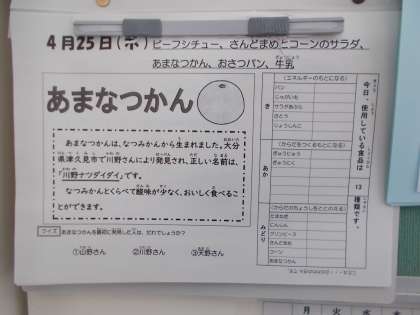 4月25日(ホ) ビーフシチュー、さんどまめとコーンのサラダ、
あまなつかん、おさつパン、牛乳
あまなつかん
あまなつかんは、なつみかんから生まれました。大分
県津久見市で川野さんにより発見され、正しい名前は、
「川野ナツダイダイ」です。
なつみかんとくらべて酸味が少なく、おいしく食べるこ
とができます。
クイズ あまなつかんを最初に発見した人は、だれでしょうか？
①山野さん ②川野さん ③天野さん
今日、使用している食品は 13 種類です。
き
(エネルギーのもとになる)
パン
じゃがいも
サラダあぶら
さとう
あか
(からだをつくるもとになる)
ぎゅうにゅう
ぎゅうにく
みどり
(からだのちょうしをととのえる)
たまねぎ
にんじん
グリンピース
さんどまめ
コーン
あまなつかん
月 火 水 木